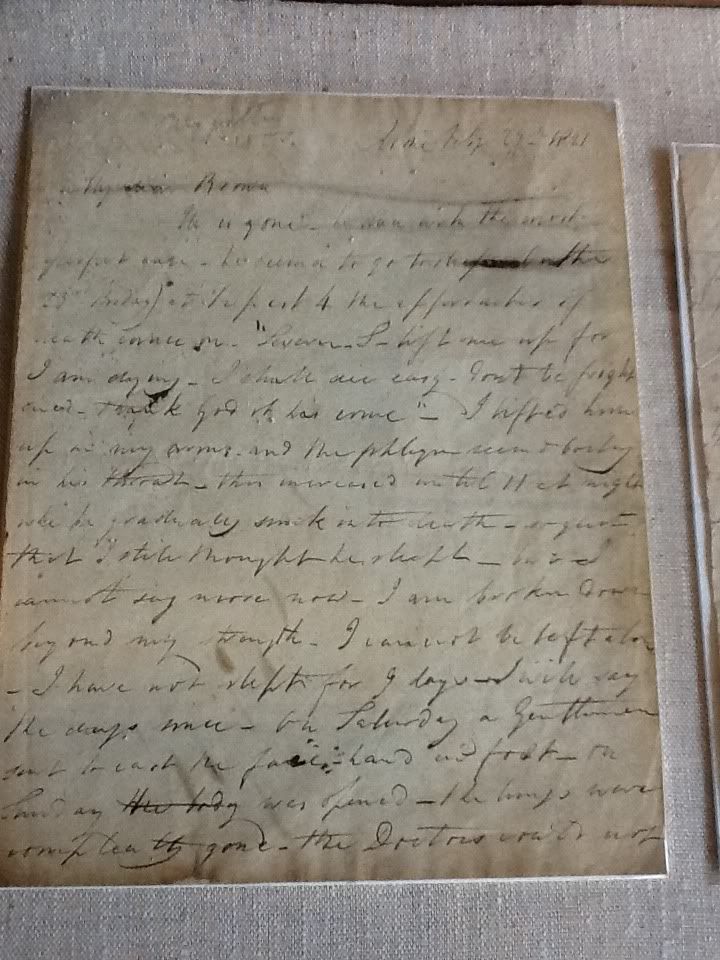 Rome Feby 27th 1821
My dear Brown
He is gone - he died with the most
perfect ease - he seemed to go to sleep on the
23rd Friday) at half past 4 the approaches of
death came on - "Severn - S - lift me up for
I am dying - I shall die easy - dont be fright
ened - thank God it has come" - I lifted him
up in my arms - and the phlegm seem'd boiling
in his throat - this increased until 11 at night
when he gradually sunk into death - so quiet
that I still thought he slept - but I
cannot say more now - I am broken down
beyond my strength - I cannot be left alone
- I have not slept for 9 days - I will say
the days since - On Saturday a Gentleman
sent to cast the face - hand and foot - on
Sunday the body was opened - the lungs were
compleatly gone - the Doctors could not